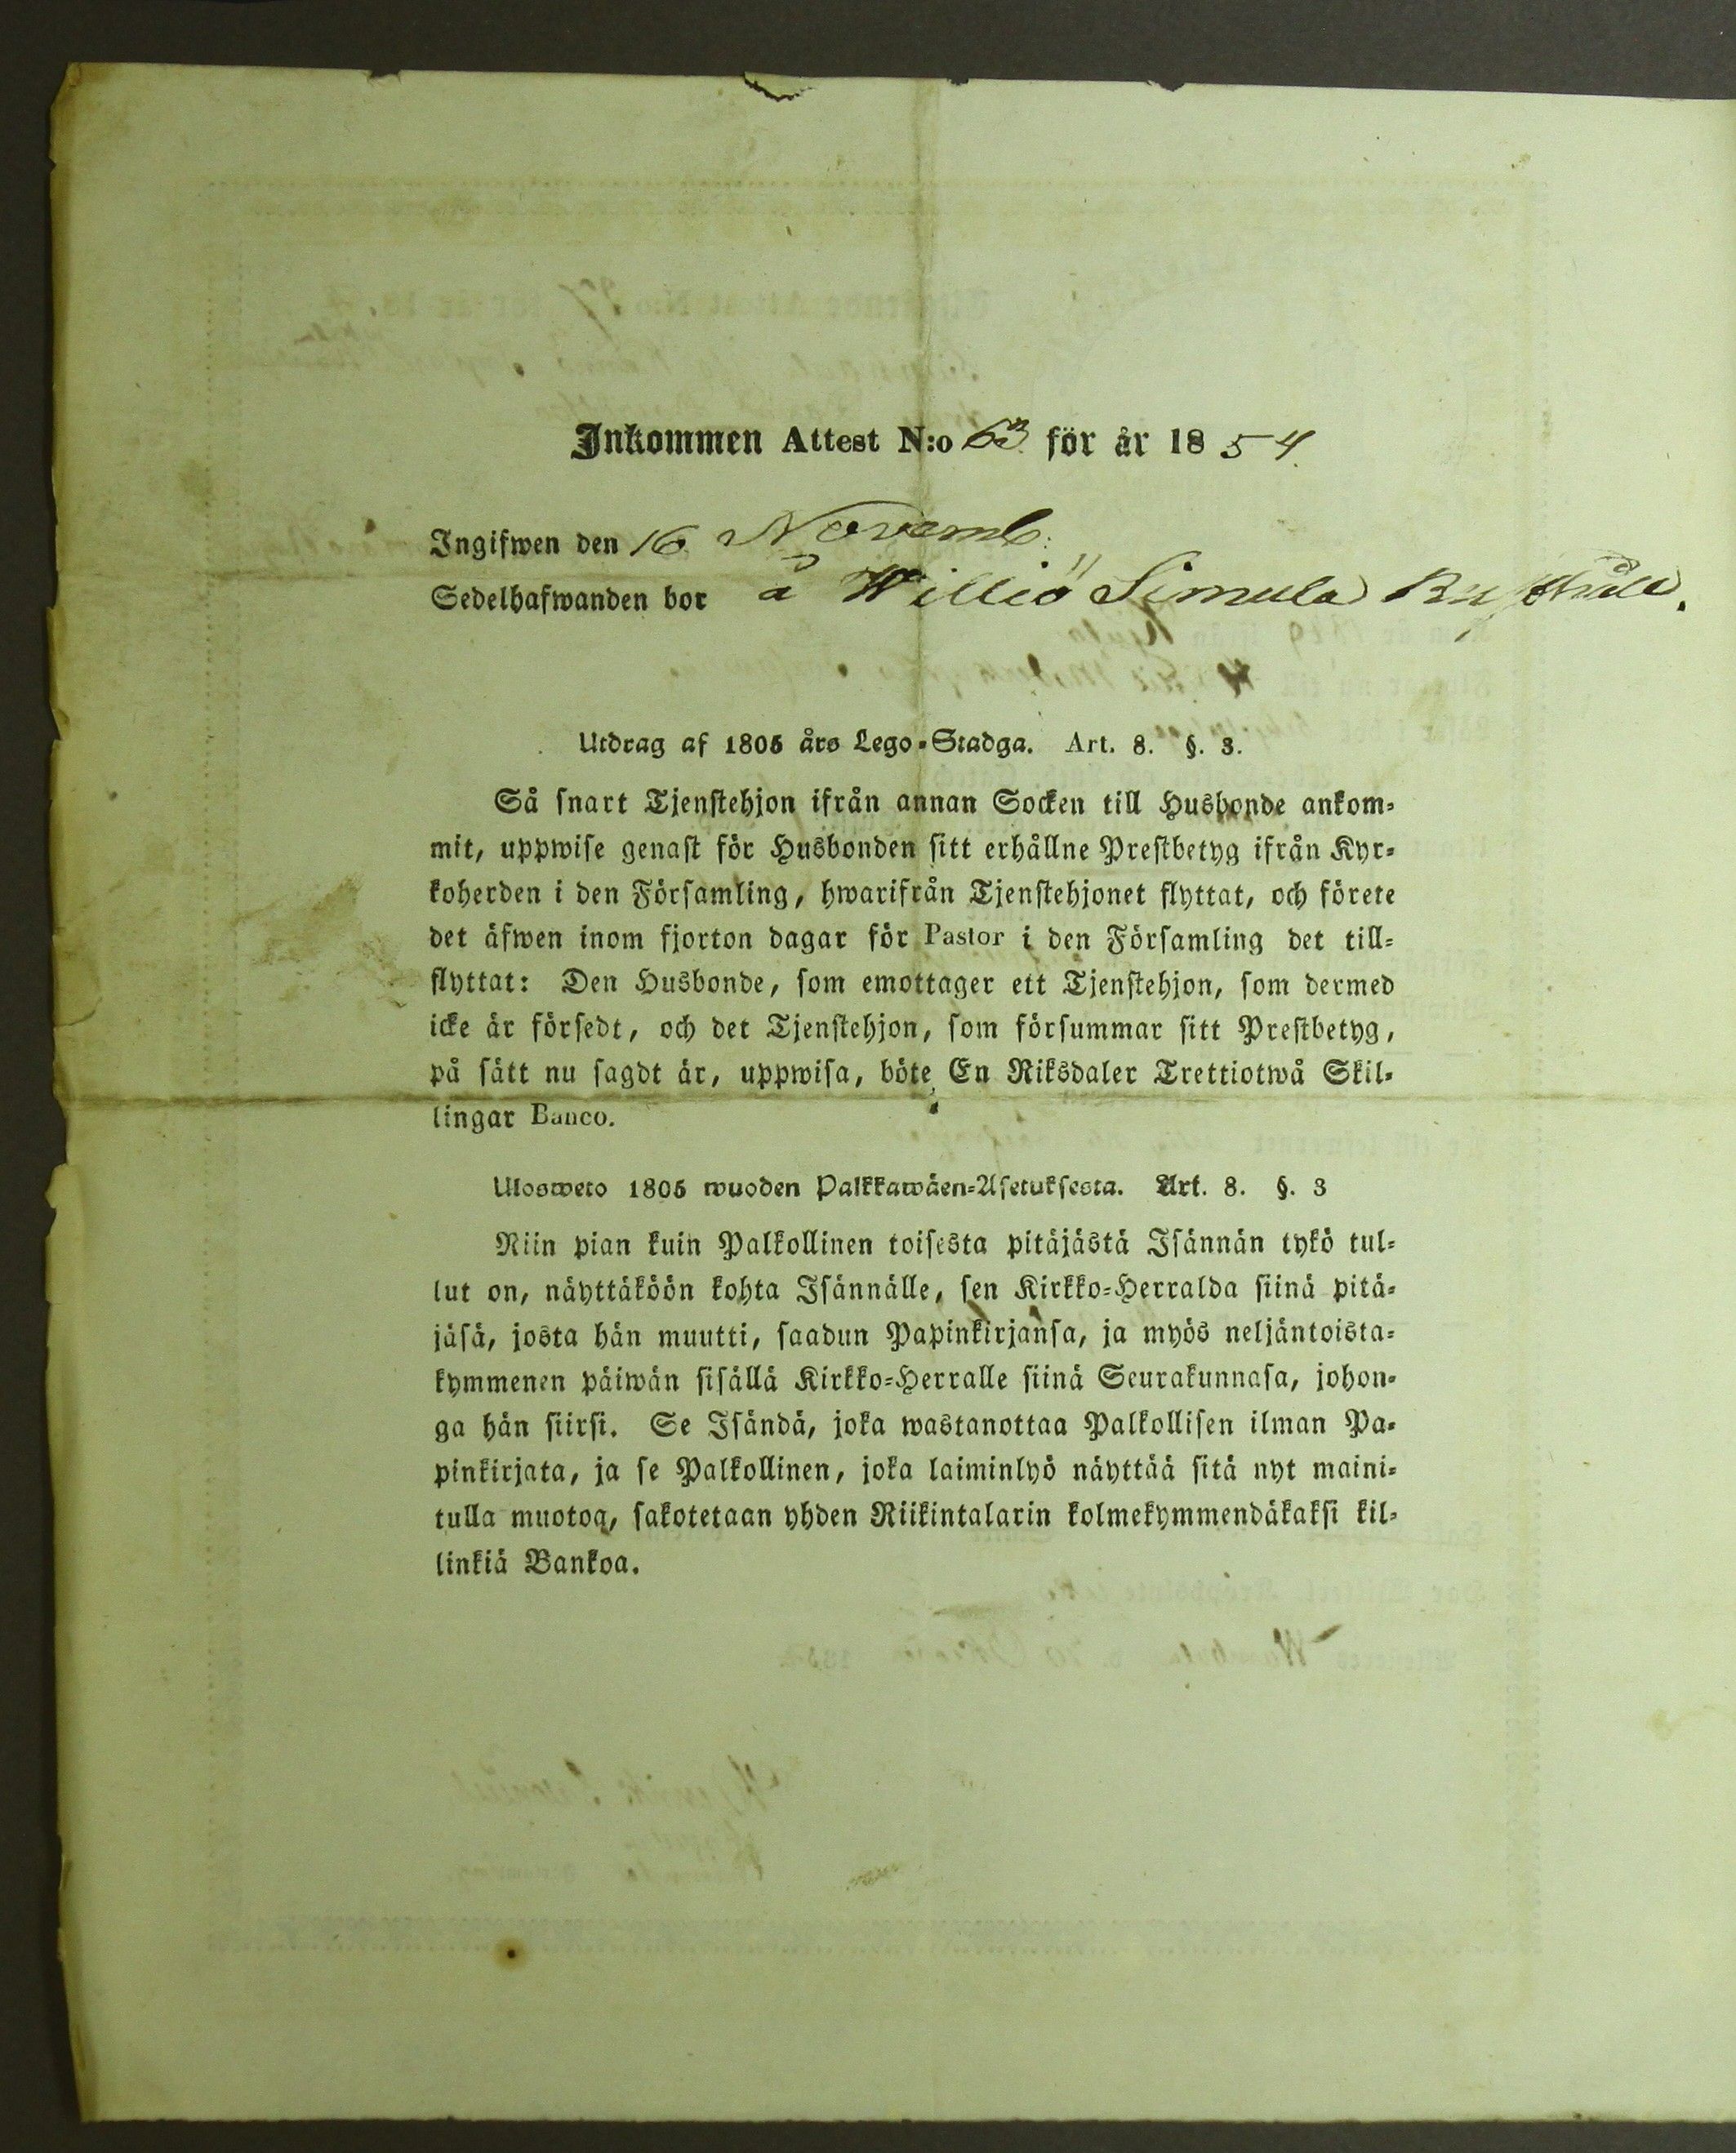 Inkommen Attest N:o 63 för år 1854.
Ingifwen den 16 Novemb:
Sedelhafwanden bor å Williö Simula Rusthåll.
Utdrag af 1805 års Lego-Stadga. Art. 8. §. 3.
Så snart Tjenstehjon ifrån annan Socken till Husbonde ankom-
mit, uppwise genast för Husbonden sitt erhållne Prestbetyg ifrån Kyr-
koherden i den Församling, hwarifrån Tjenstehjonet flyttat, och förete
det äfwen inom fjorton dagar för Pastor i den Församling det till-
flyttat: Den Husbonde, som emottager ett Tjenstehjon, som dermed
icke är försedt, och det Tjenstehjon, som försummar sitt Prestbetyg,
på sätt nu sagdt är, uppwisa, böte En Riksdaler Trettiotwå Skil-
lingar Banco.
Ulosweto 1805 wuoden Palkkawäen-Asetuksesta. Art. 8. §. 3
Niin pian kuin Palkollinen toisesta pitäjästä Isännän tykö tul-
lut on, näyttäköön kohta Isännälle, sen Kirkko-Herralda siinä pitä-
jäsä, josta hän muutti, saadun Papinkirjansa, ja myös neljäntoista-
kymmenen päiwän sisällä Kirkko-Herralle siinä Seurakunnasa, johon-
ga hän siirsi. Se Isändä, joka wastanottaa Palkollisen ilman Pa-
pinkirjata, ja se Palkollinen, joka laiminlyö näyttää sitä nyt maini-
tulla muotoa, sakotetaan yhden Riikintalarin kolmekymmendäkaksi kil-
linkiä Bankoa.